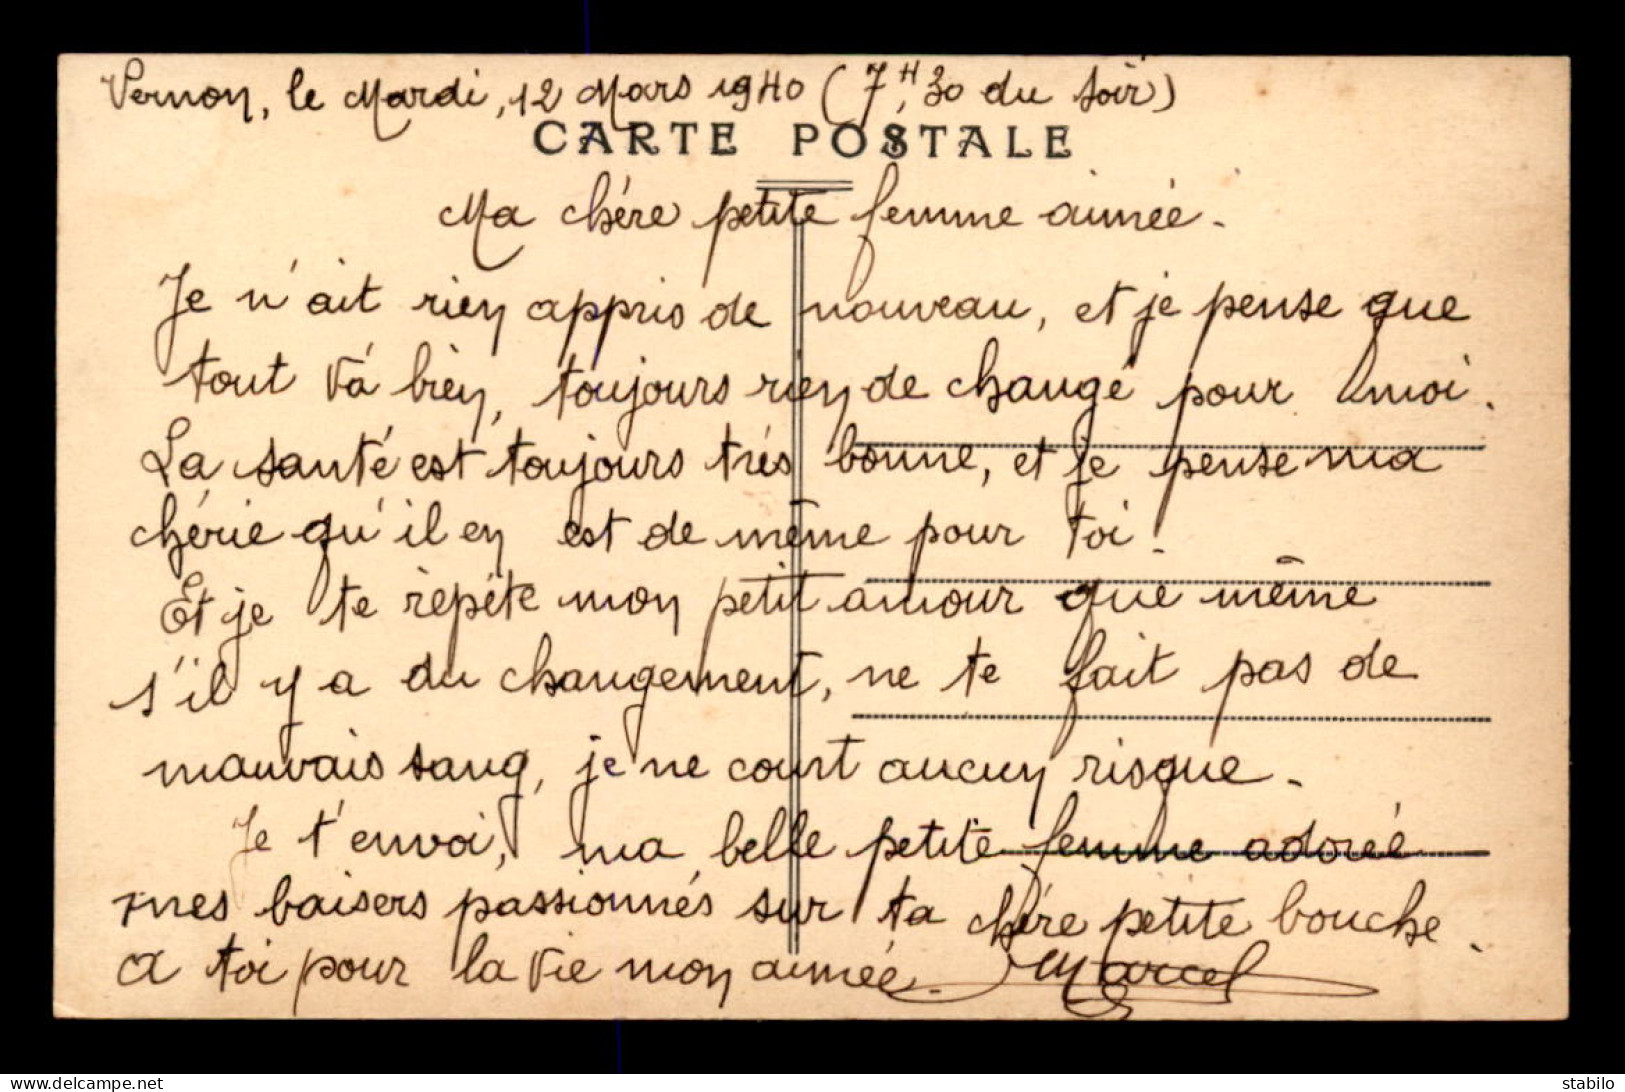 Vernon, le Mardi, 12 Mars 1940 (7H,30 du soir)
CARTE POSTALE
Ma chére petite femme aimée.
Je n'ait rien appris de nouveau, et je pense que
tout và bien, toujours rien de changé pour moi.
La santé est toujours trés bonne, et je pense ma
chérie qu'il en est de même pour toi.
Et je te répéte mon petit amour que même
s'il y a du changement, ne te fait pas de
mauvais sang, je ne court aucun risque.
Je t'envoi, ma belle petite femme adorée
mes baisers passionnés sur ta chére petite bouche.
A toi pour la vie mon aimée. Marcel
stabilo